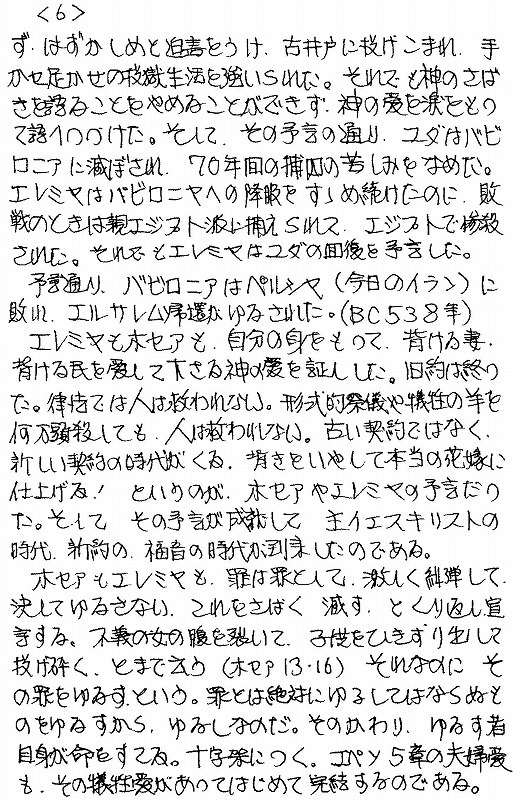 <6>
ず、はずかしめと迫害をうけ、古井戸に投げこまれ、手
かせ足かせの投獄生活を強いられた。それでも神のさば
きを語ることをやめることができず、神の愛を涙をもっ
て語りつづけた。そして、その予言の通り、ユダはバビ
ロニアに滅ぼされ、70年間の捕囚の苦しみをなめた。
エレミヤはバビロニヤへの降服をすゝめ続けたのに、敗
戦のときは親エジプト派に捕えられて、エジプトで惨殺
された。それでもエレミヤはユダの回復を予言した。
予言通り、バビロニアはペルシャ(今日のイラン)に
敗れ、エルサレム帰還がゆるされた。(BC538年)
エレミヤもホセアも、自分の身をもって、背ける妻、
背ける民を愛して下さる神の愛を証しした。旧約は終っ
た。律法では人は救われない。形式的祭儀や犠牲の羊を
何万頭殺しても、人は救われない。古い契約ではなく、
新しい契約の時代がくる、背きをいやして本当の花嫁に
仕上げる!というのが、ホセアやエレミヤの予言だっ
た。そして その予言が成就して 主イエスキリストの
時代、新約の、福音の時代が到来したのである。
ホセアもエレミヤも、罪は罪として、激しく糾弾して、
決してゆるさない、これをさばく 滅す、とくり返し宣
言する。不義の女の腹を裂いて、子供をひきずり出して
投げ砕く、とまで云う(ホセア13・16) それなのに そ
の罪をゆるすという。罪とは絶対にゆるしてはならぬも
のをゆるすから、ゆるしなのだ。そのかわり、ゆるす者
自身が命をすてる。十字架につく。エペソ5章の夫婦愛
も、その犠牲愛があってはじめて完結するのである。